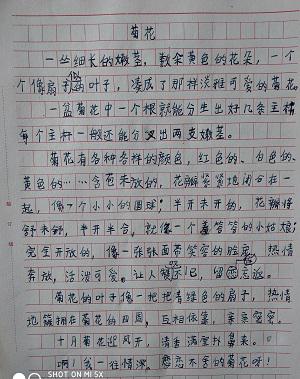 菊花
一丛细长的嫩茎，数朵黄色的花朵，一个
个像扇似的叶子，凑成了那样淡雅可爱的菊花。
一盆菊花中一个根就能分生出好几条主杆
每个主杆一般还能分叉出两支嫩茎。
菊花有各种各样的颜色，红色的、白色的、
黄色的……含苞未放的，花瓣紧紧地闭合在一
起，像一个个小小的圆球；半开未开的，花瓣将
舒未舒，半开半合，就像一个羞答答的小姑娘；
完全开放的，像一张张面带笑容的脸庞，热情
奔放，活泼可爱。让人不已，留恋忘返。
菊花的叶子像一把把青绿色的扇子，热情
地簇拥在菊花的四周，互相依靠，亲亲密密。
十月菊花迎风开，清香满堂扑鼻来。
啊！我一往情深、恋恋不舍的菊花呀！
SHOT ON MI 5X